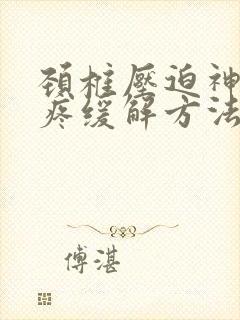 頚椎壓迫神
疼缓解方法
傅湛